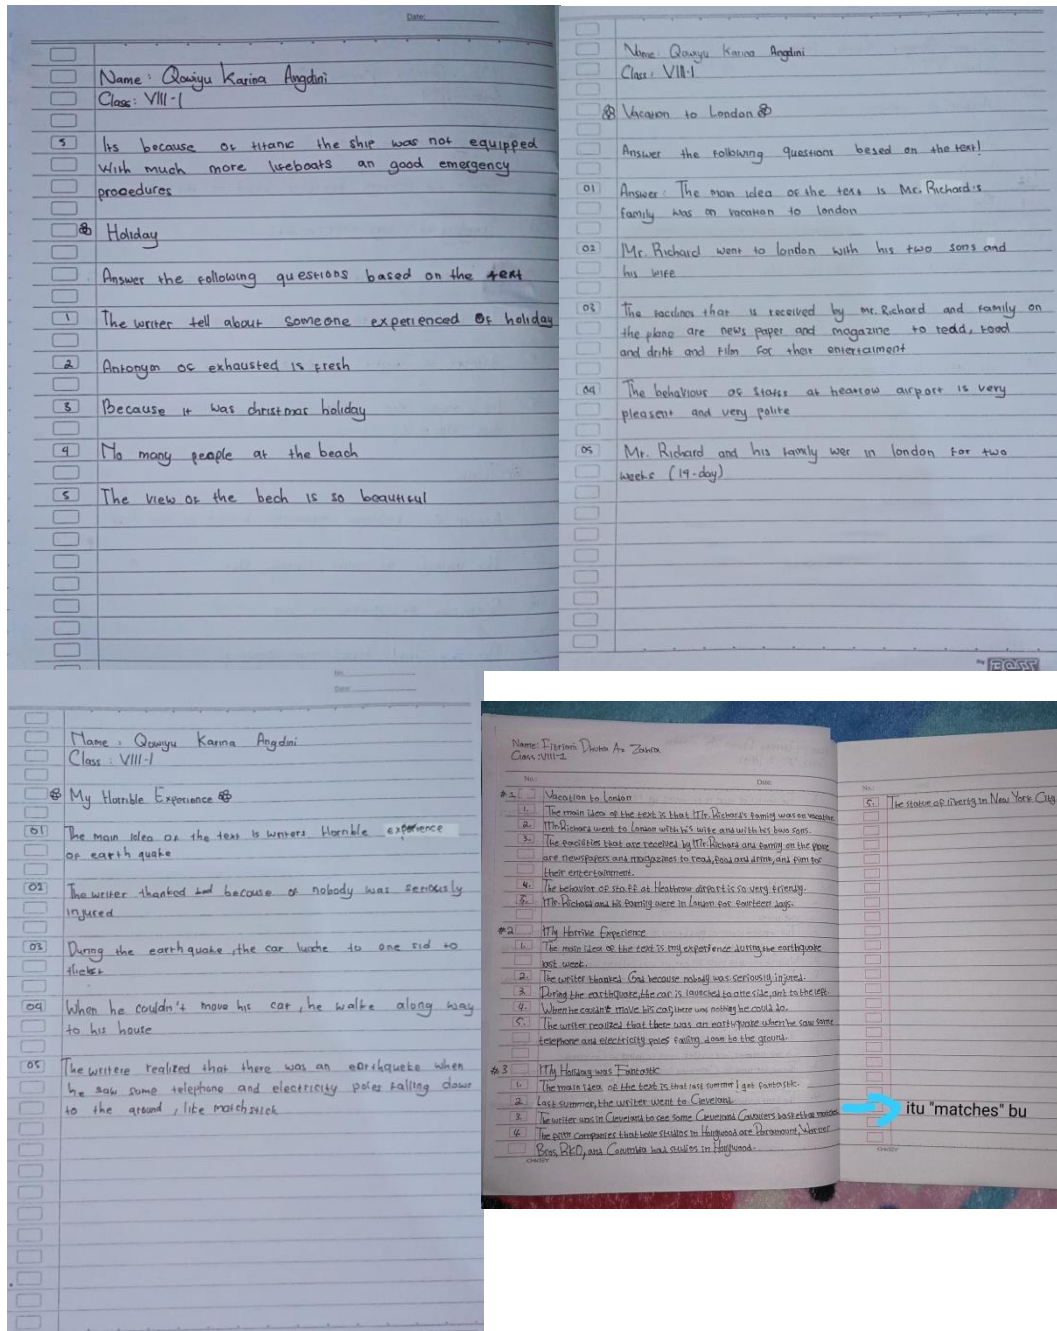 Date:
Name : Qowiyu Karina Angdini
Class : VIII-1
5 Its because of titanic the ship was not equipped
With much more lifeboats an good emergency
procedures
Holiday
Answer the following questions based on the text
1 The writer tell about someone experienced of holiday
2 Antonym of exhausted is fresh
3 Because it was christmas holiday
4 No many people at the beach
5 The view of the bech is so beautiful
Name : Qowiyu Karina Angdini
Class : VIII-1
Vacation to London
Answer the following questions besed on the text!
01 Answer : The main idea of the text is Mr. Richard's
family was on vacation to london
02 Mr. Richard went to london with his two sons and
his wife
03 The facilines that is received by mr. Richard and family on
the plane are news paper and magazine to redd, food
and drink and film for their entertaiment
04 The behaviour of staffs at heatrow airport is very
pleasent and very polite
05 Mr. Richard and his family wer in london for two
weeks (14-day)
Boss
No:
Date:
Name : Qowiyu Karina Angdini
Class : VIII-1
My Horrible Experience
01 The main idea of the text is writers Horrible experience
of earth quake
02 The writer thanked because of nobody was seriously
injured
03 During the earthquake, the car to one sid to
04 When he couldn't move his car, he walke along way
to his house
05 The writere realized that there was an earthqueke when
he saw some telephone and electricity poles falling down
to the ground, like matchstick
Name: Fitriani Dhuha Az Zahra
Class : VIII-1
No.:
Date:
#1 Vacation to London
1. The main idea of the text is that Mr. Richard's family was on vacation.
2. Mr. Richard went to London with his wife and with his two sons.
3. The facilities that are received by Mr. Richard and family on the plane
are newspapers and magazines to read, food and drink, and film for
their entertainment.
4. The behavior of staff at Heathrow airport is so very friendy.
5. Mr. Richard and his family were in London for fourteen days.
#2 My Horrible Experience
1. The main idea of the text is my experience during the earthquake
last week.
2. The writer thanked God because nobody was seriously injured.
3. During the earthquake, the car is launched to one side, ant to the left.
4. When he couldn't move his car, there was nothing he could do.
5. The writer realized that there was an earthquake when he saw some
telephone and electricity poles falling down to the ground.
#3 My Holiday was Fantastic
1. The main idea of the text is that last summer I got fantastic.
2 Last summer, the writer went to Cleveland.
3 The writer was in Cleveland to see some Cleveland Cavaliers basketball matches
4 The companies that have studios in Hollywood are Paramount, Warner
Bros, RKO, and Columbia had studios in Hollywood.
No.:
5. The statue of liberty in New York City
itu "matches" bu